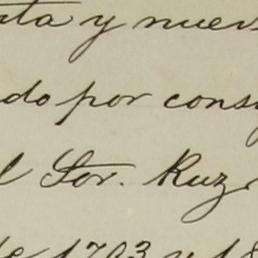 ta y nuev
do por cons
l Sor. Ruz
de 1793 y 18